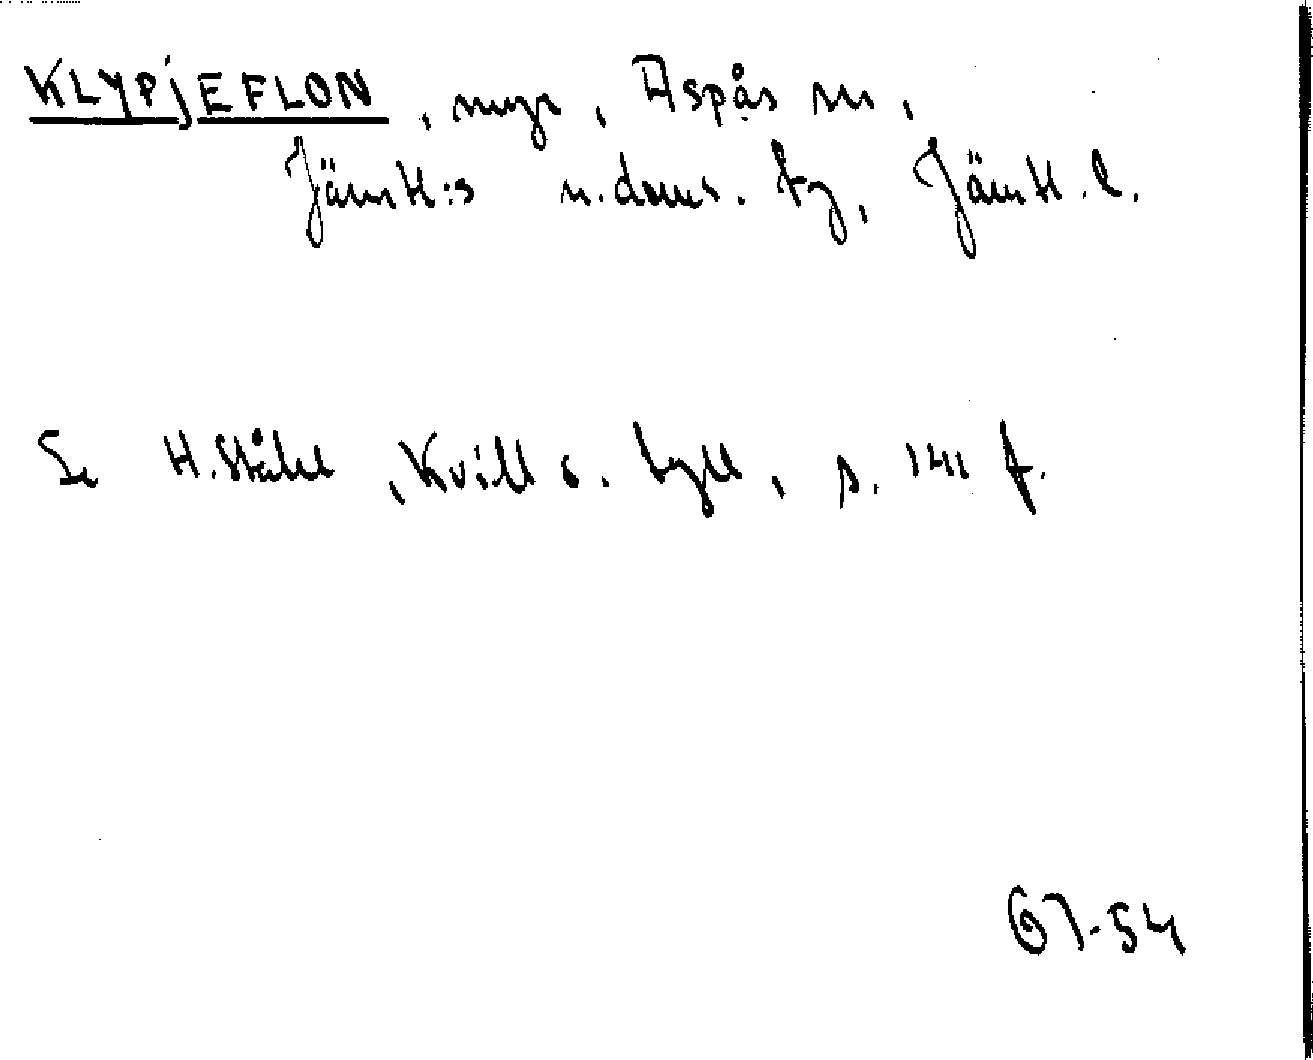 KLYPJEFLON, myr, Aspås sn,
Jämtl:s n. doms. tg, Jämtl. l.
Se H. Ståhl, Kvill o. tyll, s. 141 f.
67-54